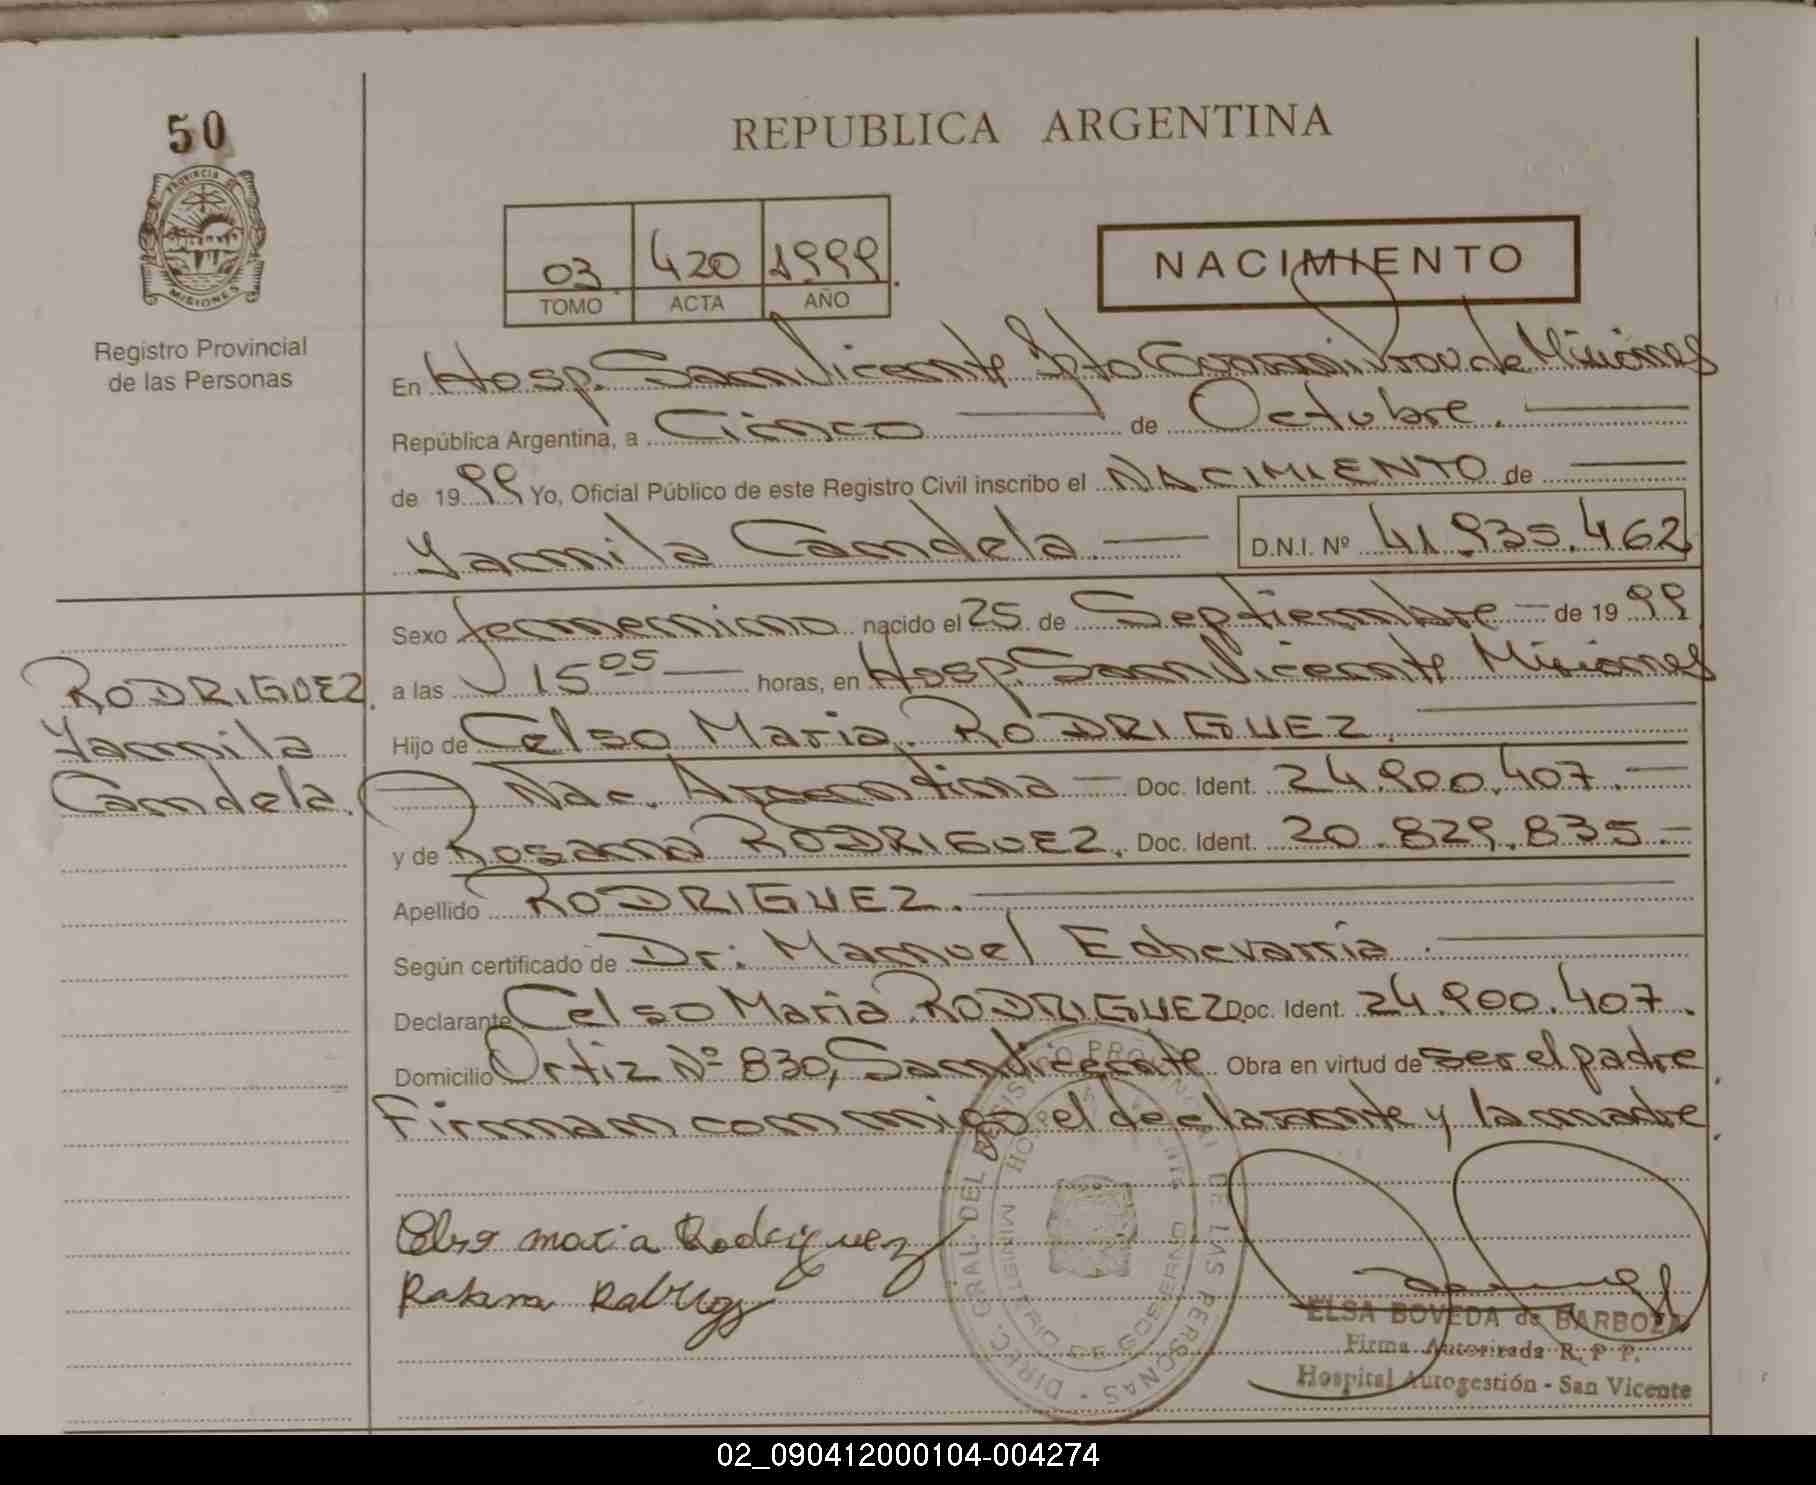 50
REPUBLICA ARGENTINA
PROVINCIA DE
MISIONES
Registro Provincial
de las Personas
03 420 1999
TOMO ACTA AÑO
NACIMIENTO
En Hosp. San Vicente Dpto Guaraní Prov. de Misiones
República Argentina, a Cinco de Octubre.
de 1999 Yo, Oficial Público de este Registro Civil inscribo el NACIMIENTO de
Yamila Candela D.N.I. Nº 41.935.462
Sexo femenino nacido el 25 de Septiembre de 1999
RODRIGUEZ
Yamila
Candela.
a las 15 05 horas, en Hosp. San Vicente Misiones
Hijo de Celso Maria RODRIGUEZ.
Nac. Argentina Doc. Ident. 24.900.407.
y de Rosana RODRIGUEZ. Doc. Ident. 20.829.835.
Apellido RODRIGUEZ.
Según certificado de Dr: Manuel Echevarria
Declarante Celso Maria RODRIGUEZ Doc. Ident. 24.900.407.
Domicilio Ortiz Nº 830, San Vicente Obra en virtud de ser el padre
Firman conmigo el declarante y la madre.
DIREC. GRAL. DEL REGISTRO PROVINCIAL DE LAS PERSONAS
MINISTERIO DE GOBIERNO
Celso maria Rodriguez
ELSA BOVEDA de BARBOZA
Firma Autorizada R. P. P.
Hospital Autogestión - San Vicente
02_090412000104-004274